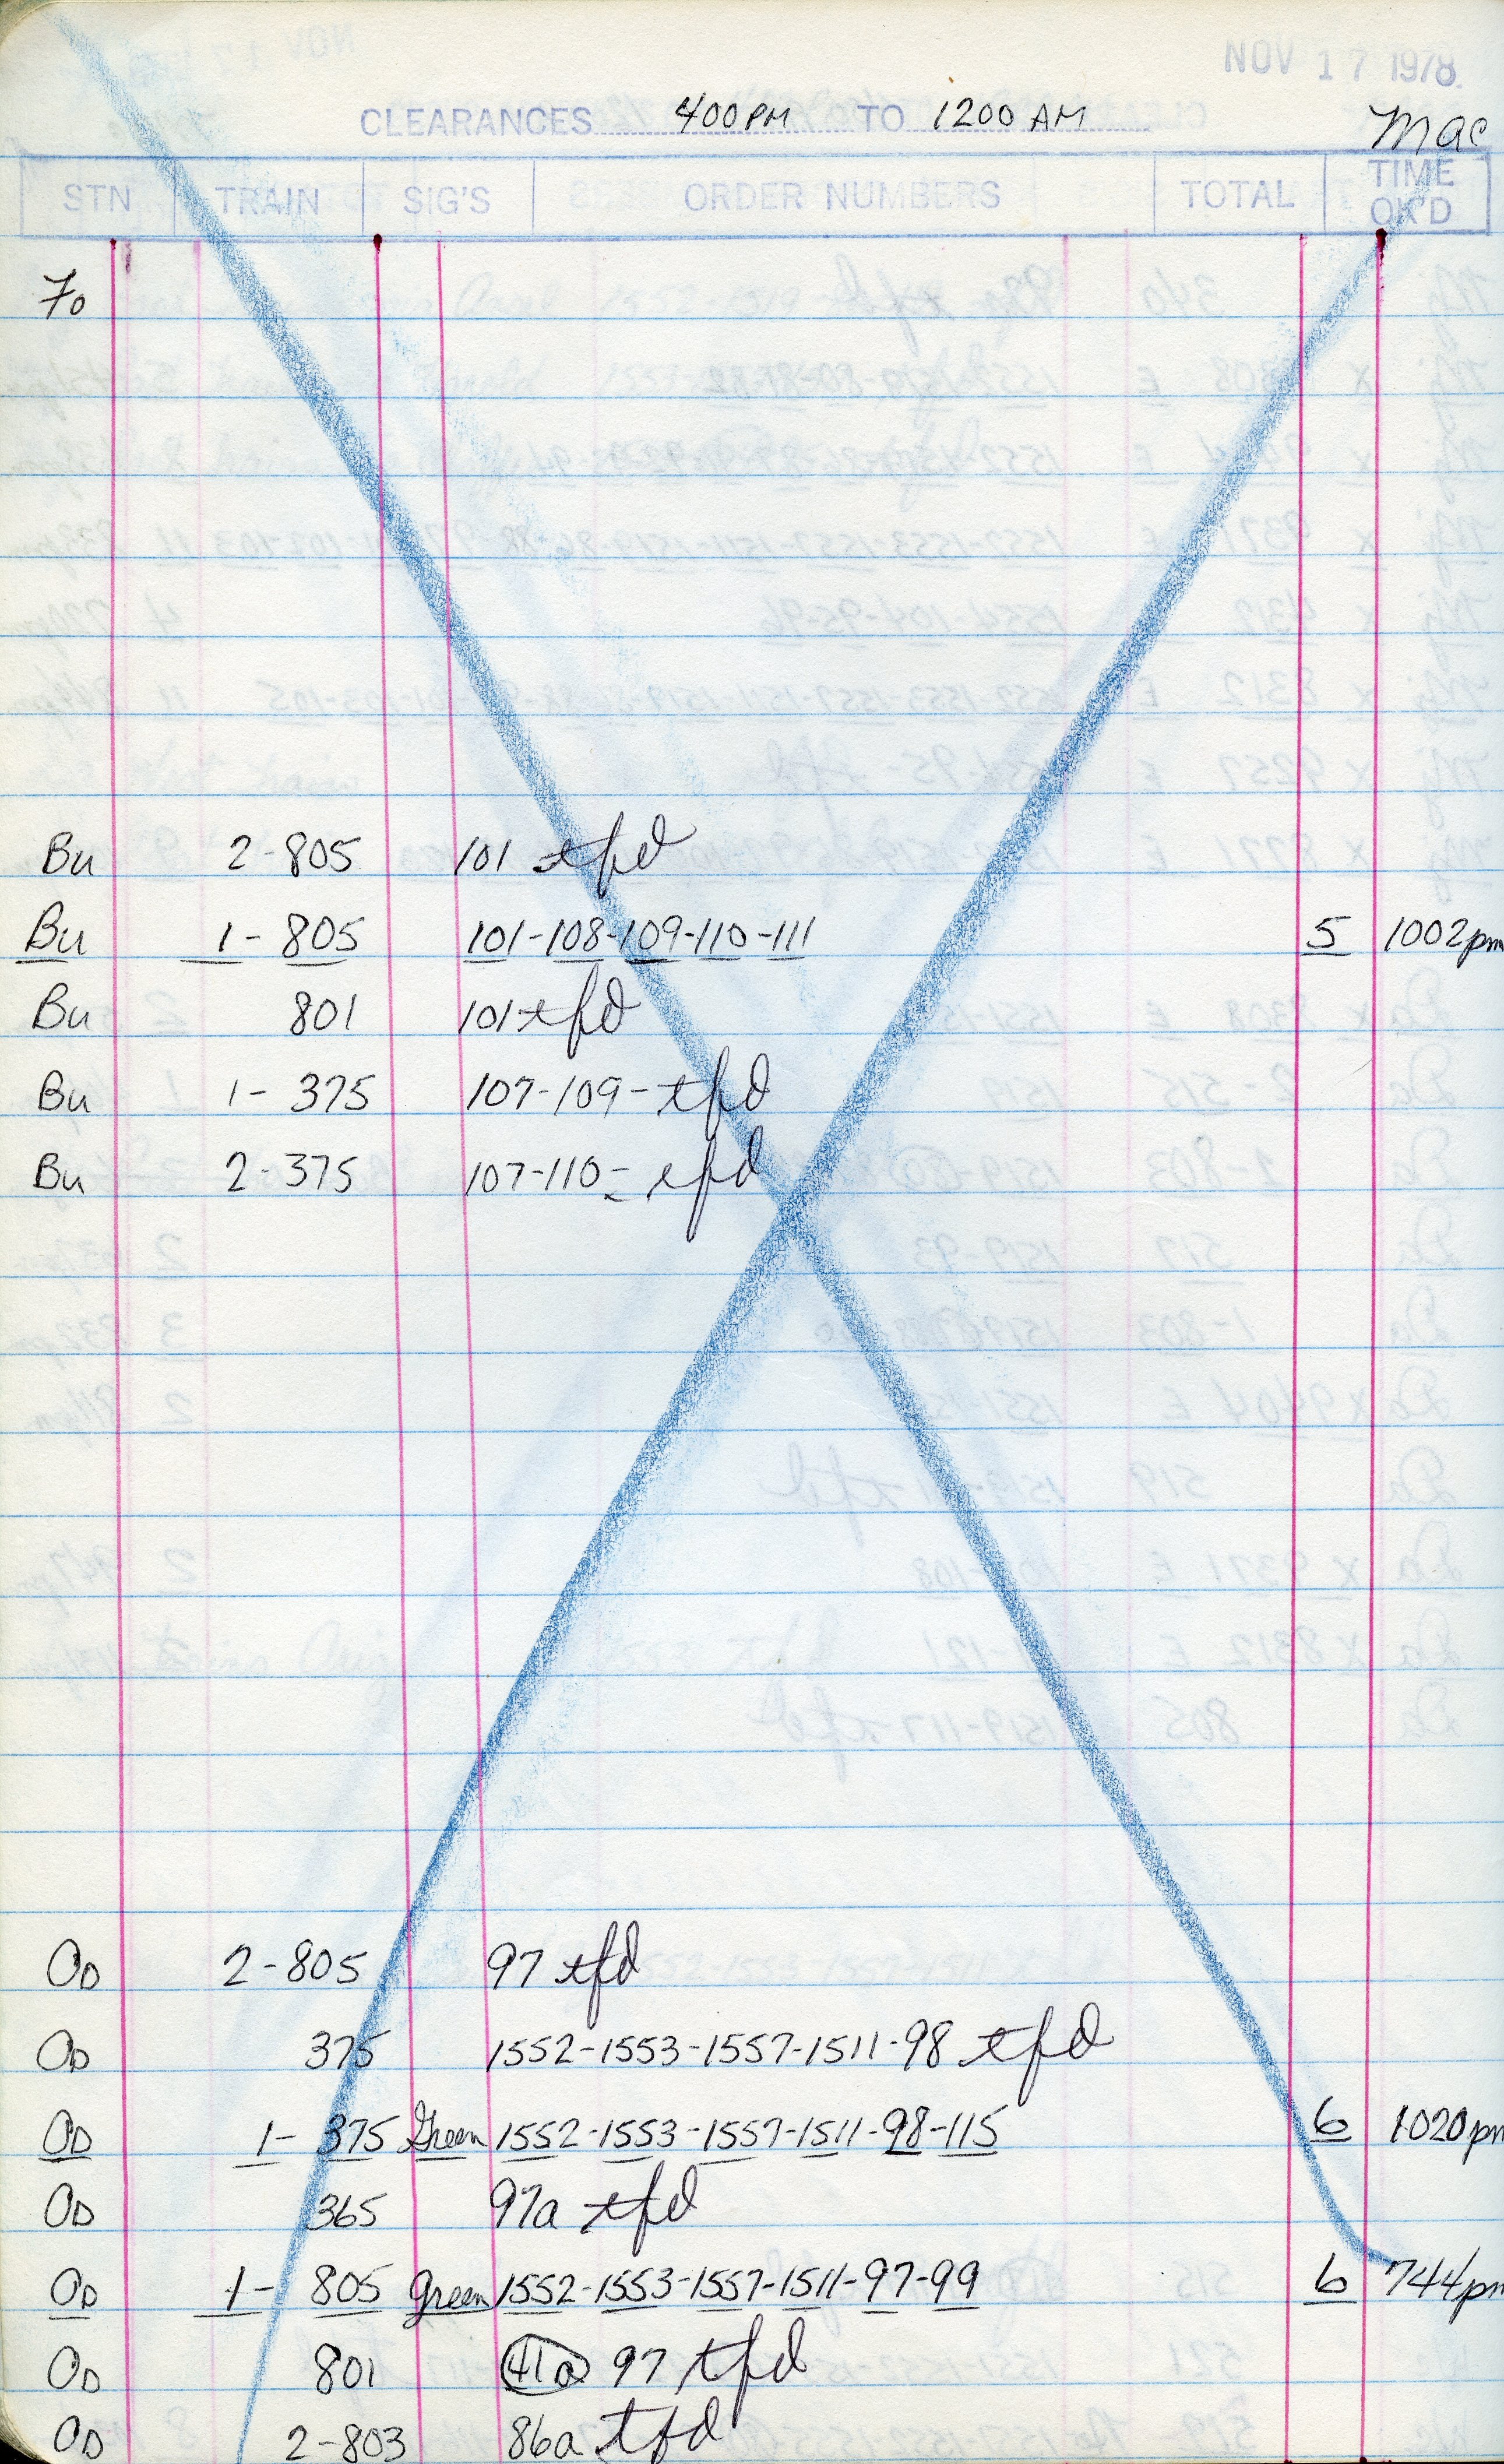 NOV 17 1978
CLEARANCES 400PM TO 1200 AM
Mac
STN TRAIN SIG'S ORDER NUMBERS TOTAL TIME OK'D
Fo
Bu 2-805 101 tfd
Bu 1-805 101-108-109-110-111 5 1002pm
Bu 801 101 tfd
Bu 1-375 107-109-tfd
Bu 2-375 107-110- tfd
OD 2-805 97 tfd
OD 375 1552-1553-1557-1511-98 tfd
OD 1-375 Green 1552-1553-1557-1511-98-115 6 1020pm
OD 365 97a tfd
OD 1-805 Green 1552-1553-1557-1511-97-99 6 744pm
OD 801 41a 97 tfd
OD 2-803 86a tfd